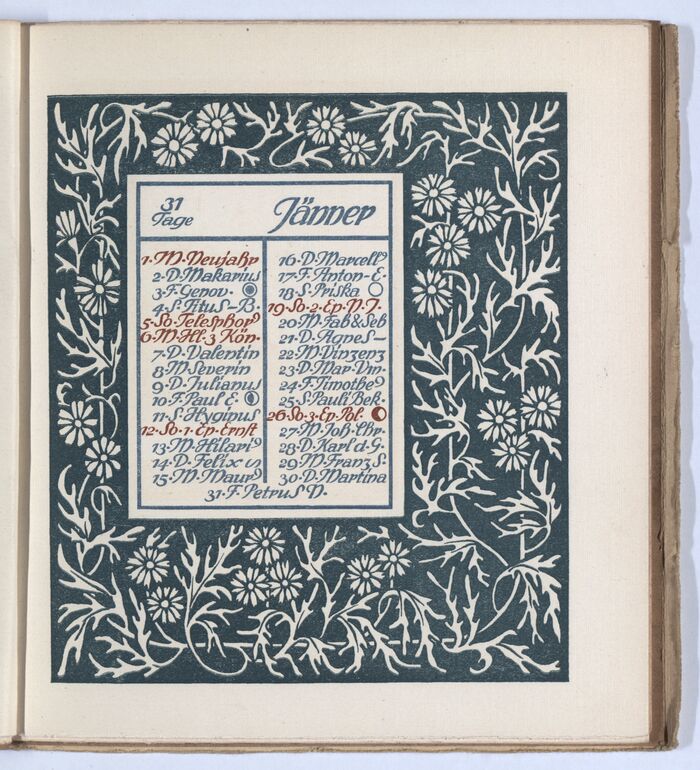 31
Tage
Jänner
1·M·Neujahr
2·D·Makarius
3·F·Genov·
4·S·Titus–B·
5·So·Telesphor
6·M·Hl·3 Kön·
7·D·Valentin
8·M·Severin
9·D·Julianus
10·F·Paul E·
11·S·Hyginus
12·So·1·Ep·Ernst
13·M·Hilari
14·D·Felix
15·M·Maur
16·D·Marcell
17·F·Anton·E·
18·S·Priska
19·So·2·Ep·N·J·
20·M·Fab&Seb
21·D·Agnes–
22·M·Vinzenz
23·D·Mar·Vm·
24·F·Timothe
25·S·Pauli Bek·
26·So·3·Ep·Pol·
27·M·Joh·Chr·
28·D·Karl d·G·
29·M·Franz S·
30·D·Martina
31·F·Petrus N·